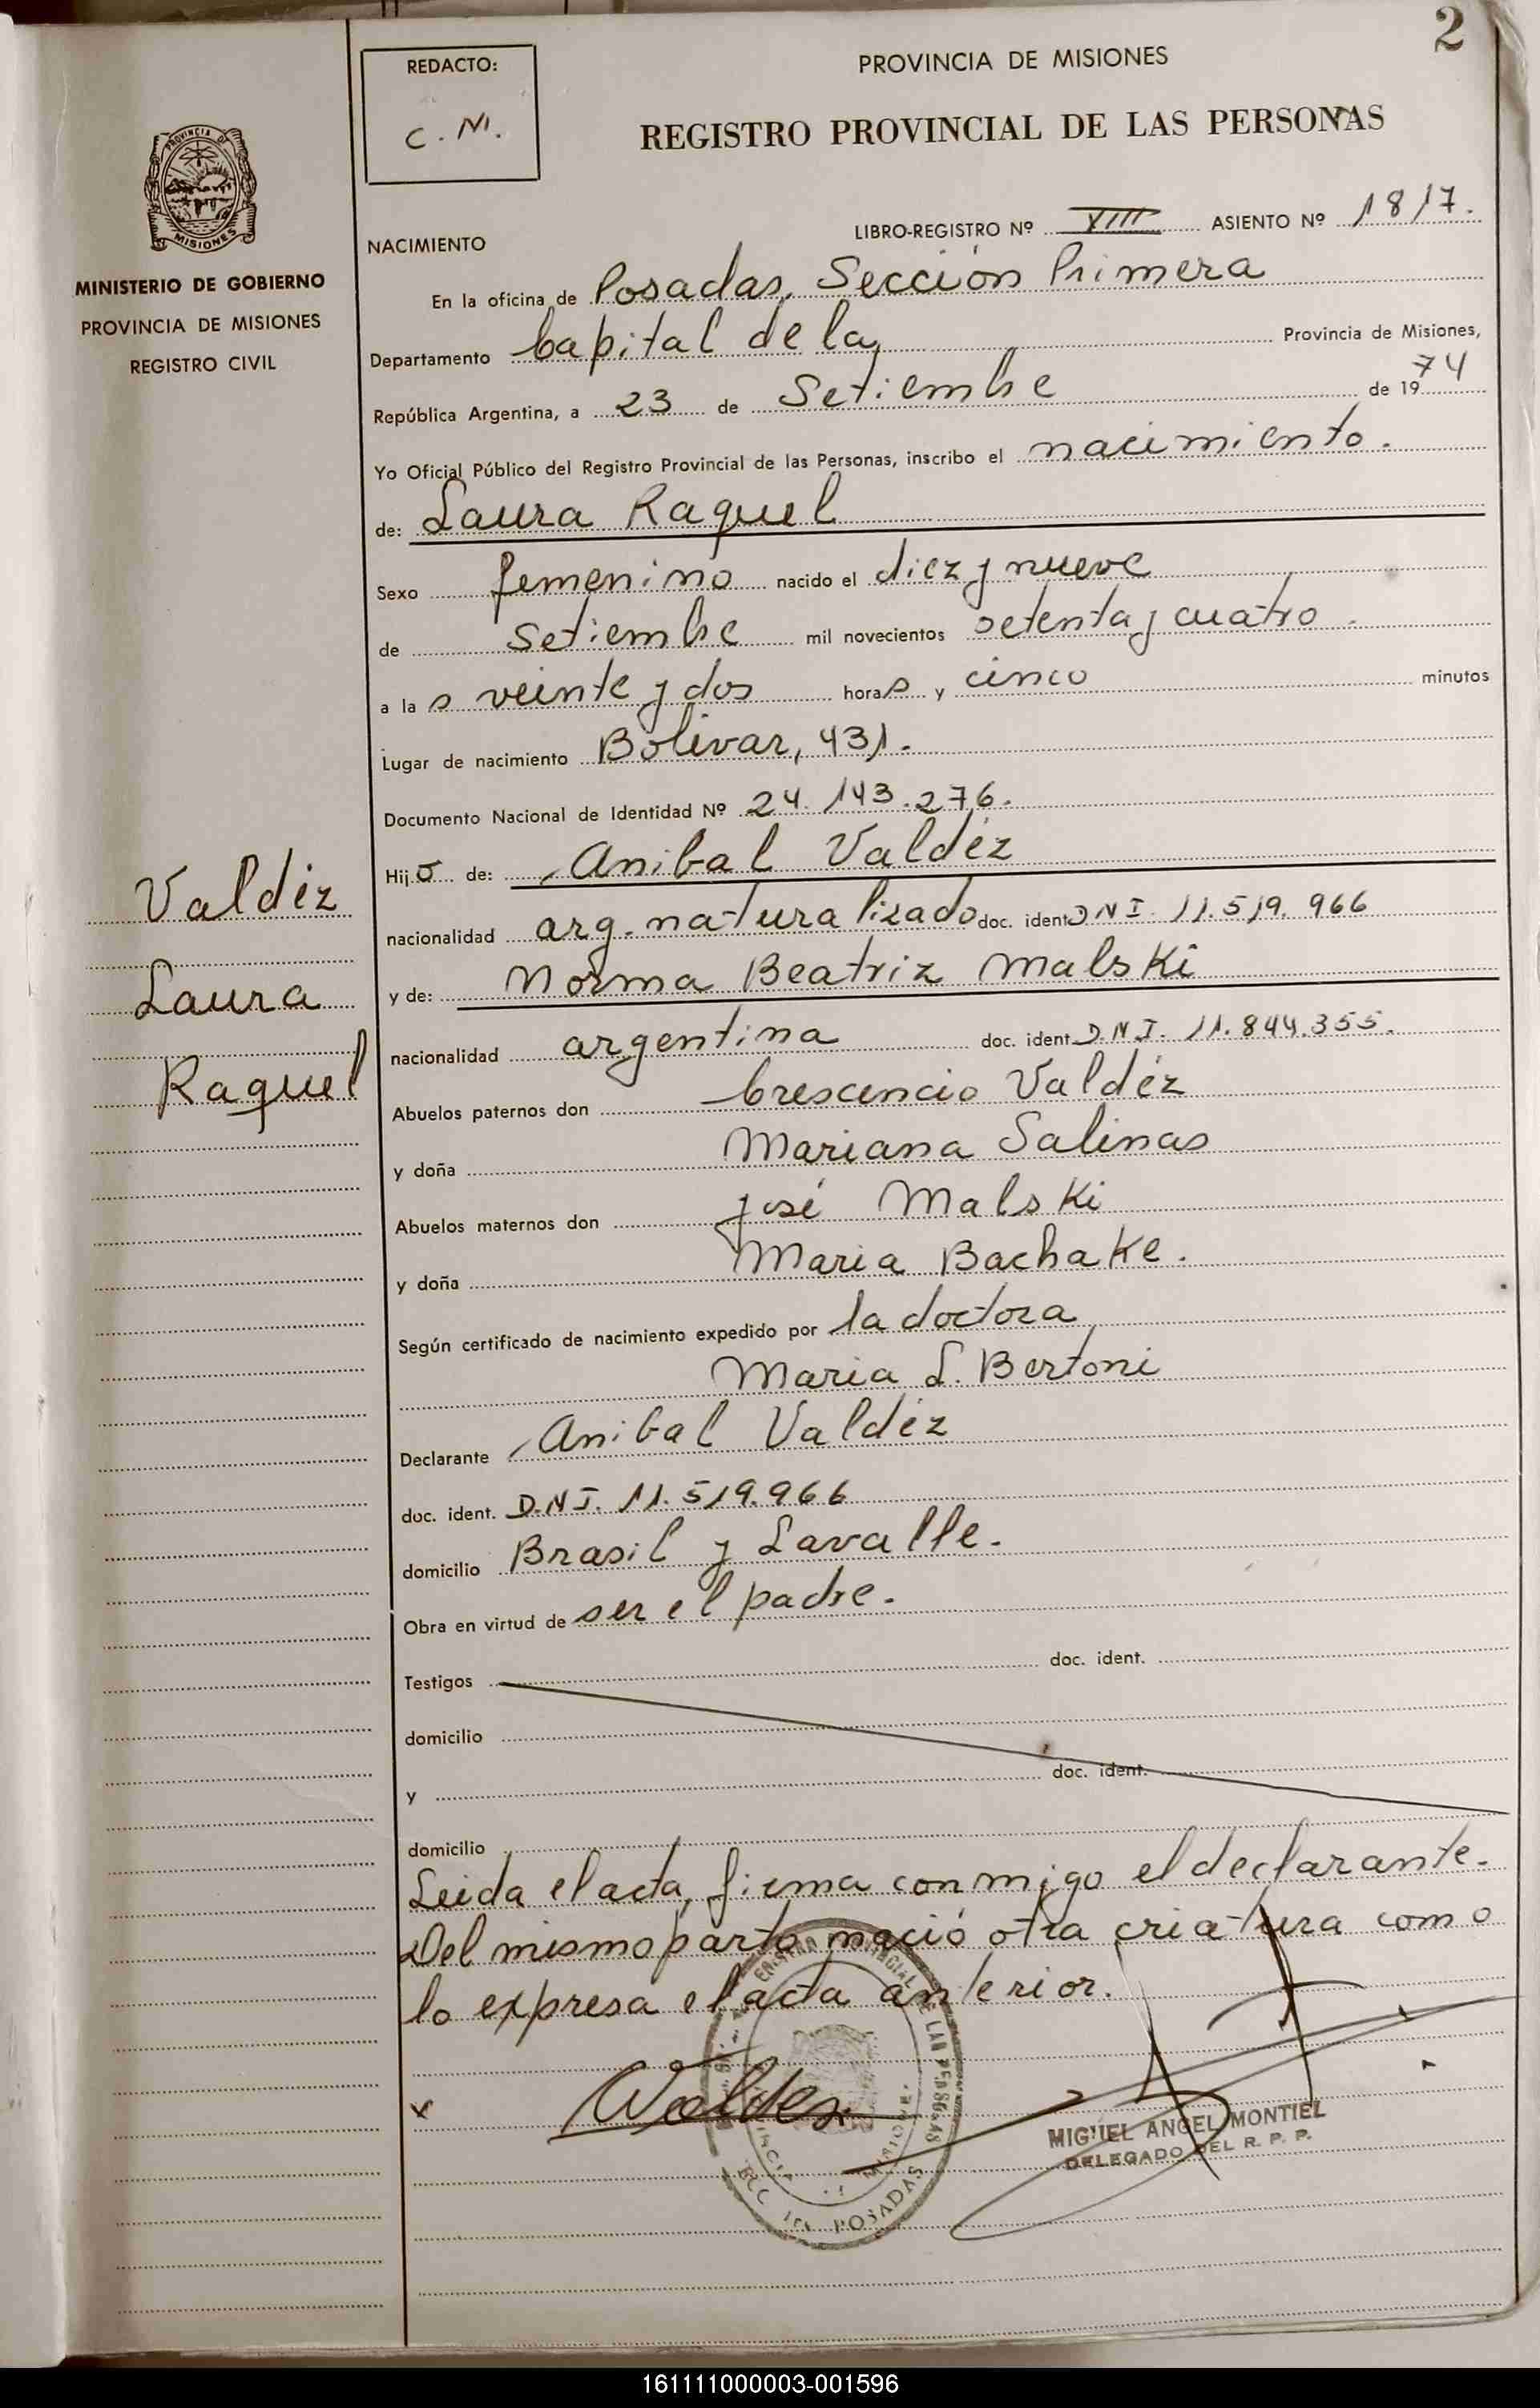 2
REDACTO:
C. M.
PROVINCIA DE MISIONES
REGISTRO PROVINCIAL DE LAS PERSONAS
PROVINCIA DE
MISIONES
MINISTERIO DE GOBIERNO
PROVINCIA DE MISIONES
REGISTRO CIVIL
NACIMIENTO
LIBRO-REGISTRO Nº VIII ASIENTO Nº 1817.
En la oficina de Posadas, Sección Primera
Departamento Capital de la Provincia de Misiones,
República Argentina, a 23 de Setiembre de 1974
Yo Oficial Público del Registro Provincial de las Personas, inscribo el nacimiento.
de: Laura Raquel
Sexo femenino nacido el diez y nueve
de Setiembre mil novecientos setenta y cuatro.
a la s veinte y dos horas y cinco minutos
Lugar de nacimiento Bolívar, 431.
Documento Nacional de Identidad Nº 24.143.276.
Hija de: Anibal Valdéz
nacionalidad arg. naturalizado doc. ident. DNI. 11.519.966
y de: Norma Beatriz Malski
nacionalidad argentina doc. ident. D.N.I. 11.844.355.
Abuelos paternos don Crescencio Valdéz
y doña Mariana Salinas
Abuelos maternos don José Malski
y doña Maria Bachake.
Según certificado de nacimiento expedido por la doctora
Maria L. Bertoni
Declarante Anibal Valdéz
doc. ident. D.N.I. 11.519.966
domicilio Brasil y Lavalle.
Obra en virtud de ser el padre.
Testigos doc. ident.
domicilio
y doc. ident.
domicilio
Leida el acta, firma conmigo el declarante.
Del mismo parto nació otra criatura como
lo expresa el acta anterior.
Valdéz
Laura
Raquel
x Valdez
MIGUEL ANGEL MONTIEL
DELEGADO DEL R. P. P.
POSADAS
161111000003-001596